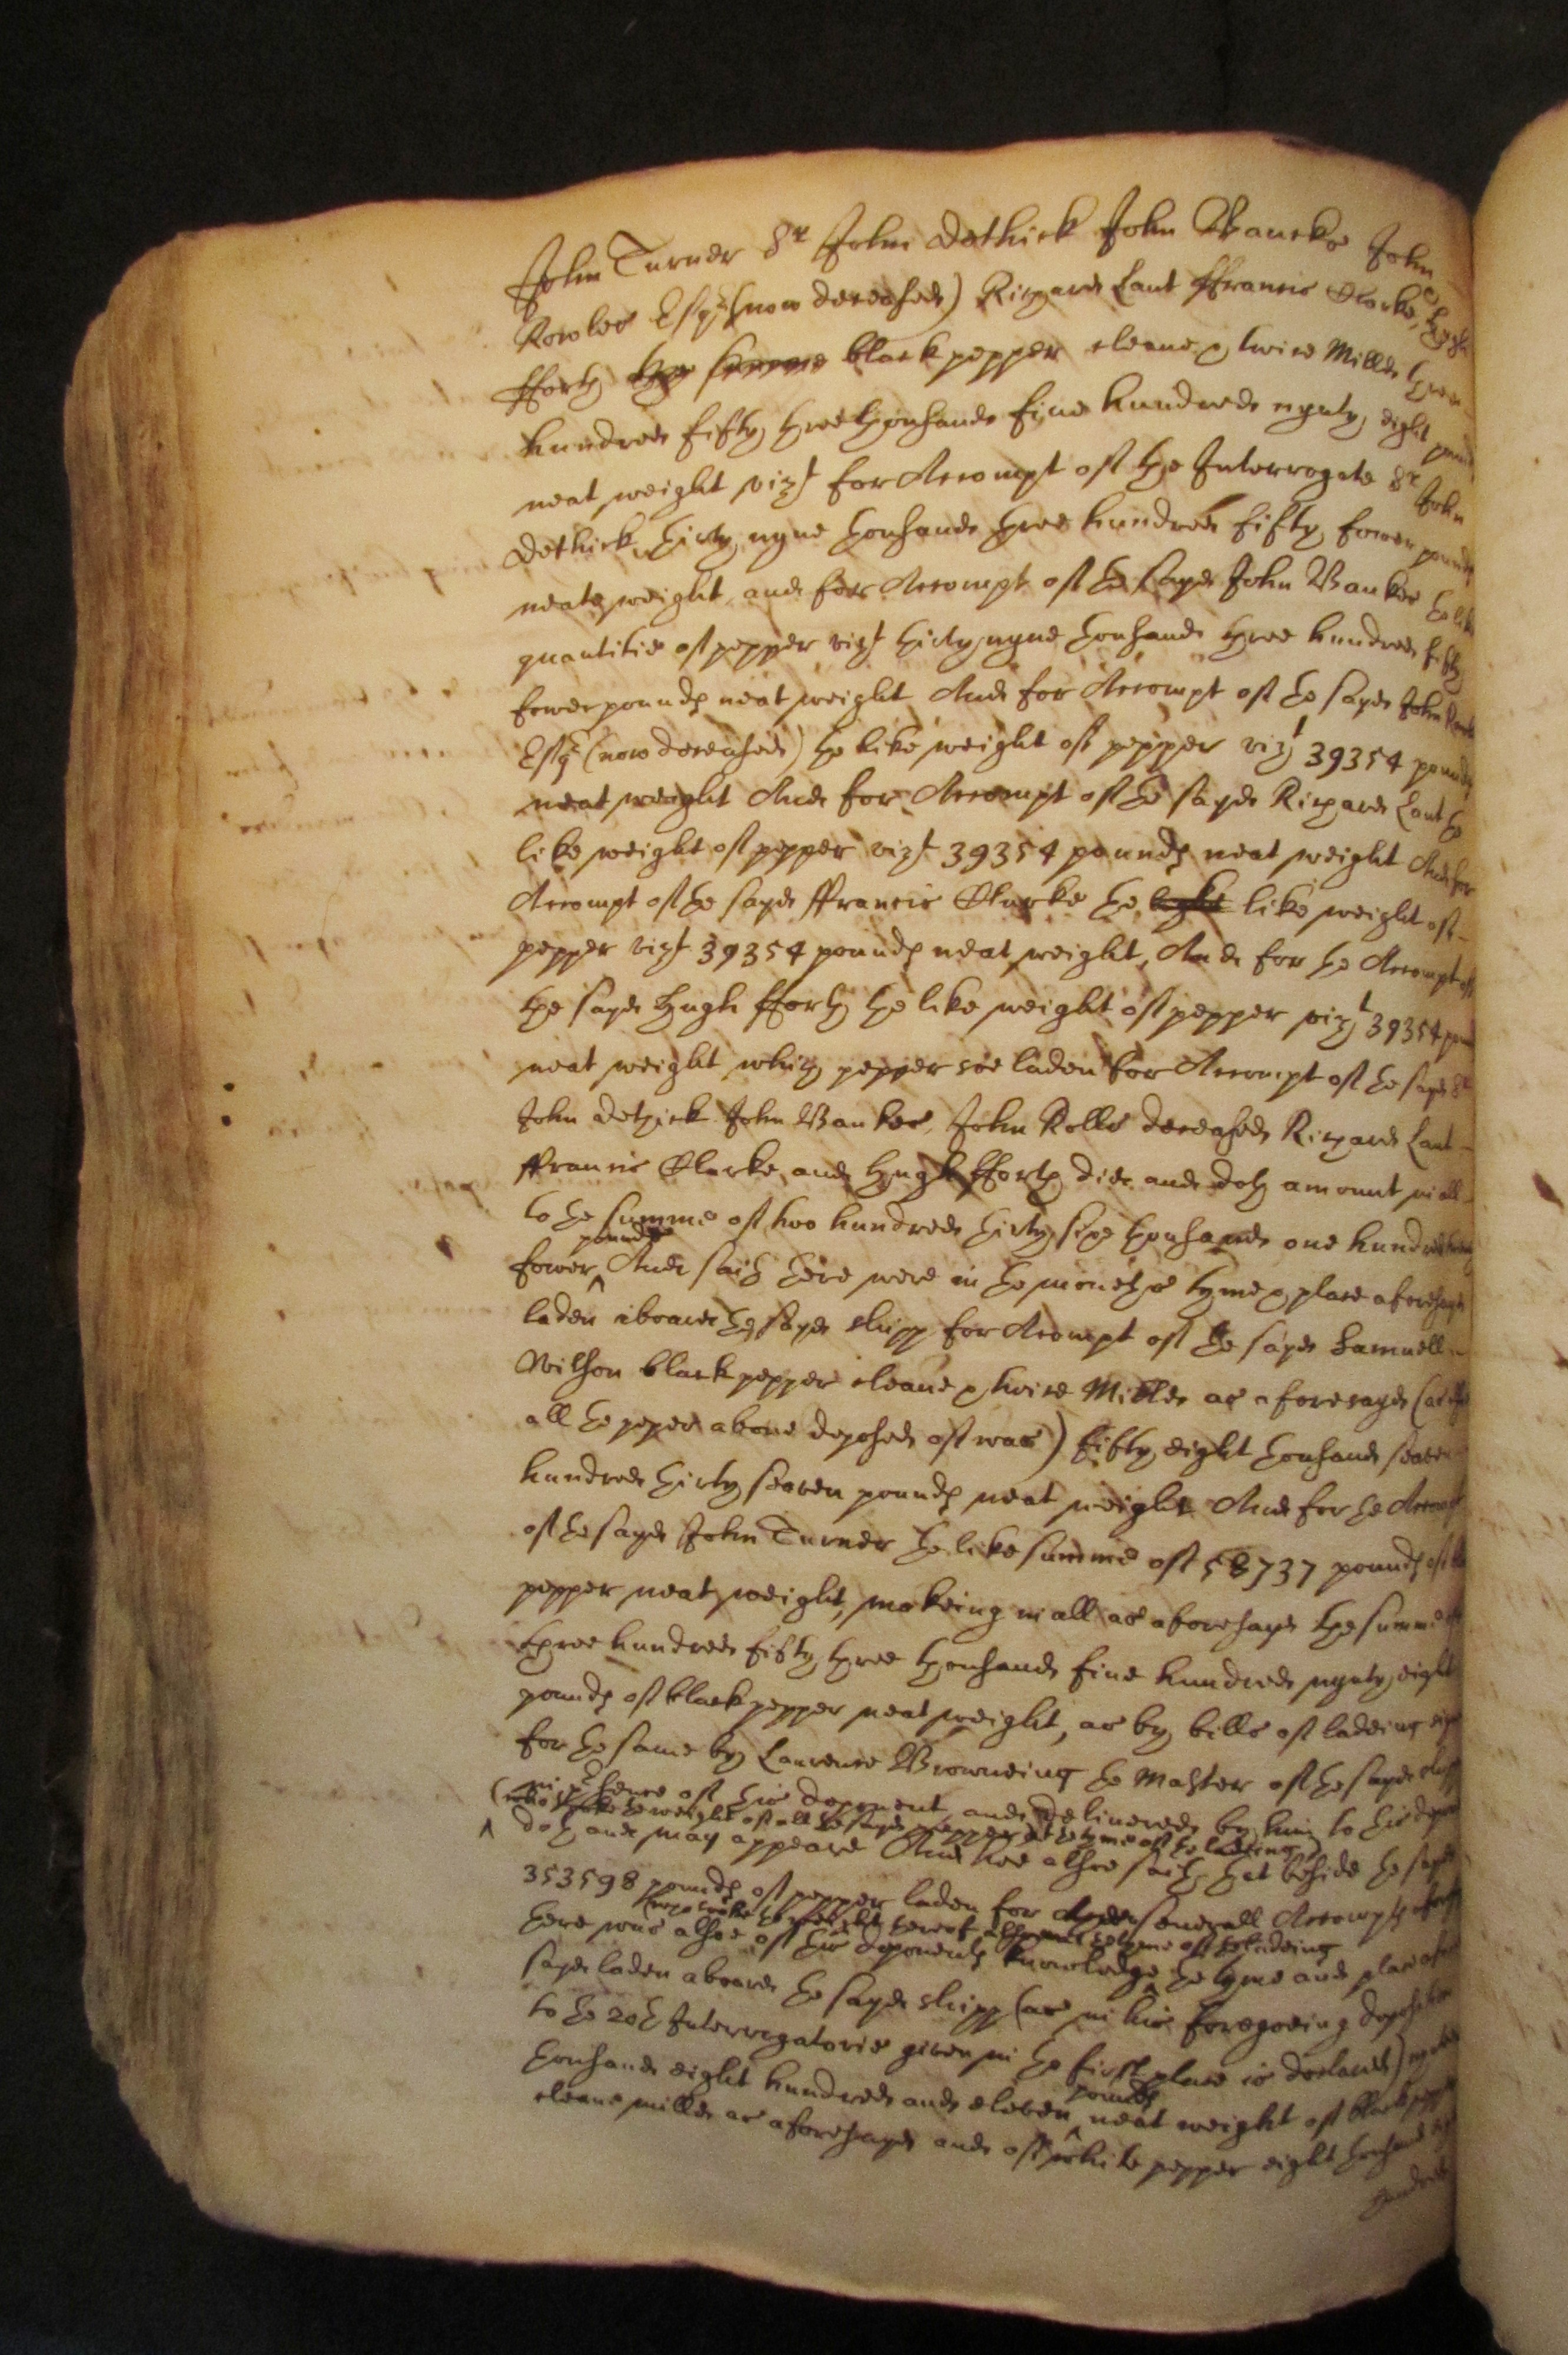 John Turner Sr John Dethick John Banckes John
Rowles Esqr (now deceased) Richard Lant ffrancis Clarke, Hugh
fforth the summe black pepper cleane & twice Milled three
hundred fifty three thousand five hundred nynty eight pounds
neat weight vizt for Accompt of the Interrogate Sr John
Dethick thirty nyne thousand three hundred fifty fower pounds
neate weight, and for Accompt of the sayd John Bankes the like
quantitie of pepper vizt thirty nyne thousand three hundred fifty
fower pounds neat weight And for Accompt of the sayd John
Esqr (now deceased) the like weight of pepper vizt 39354 pounds
neat weight And for Accompt of the sayd Richard Lant the
like weight of pepper vizt 39354 pounds neat weight And for
Accompt of the sayd ffrancis Clarke the light like weight of
pepper vizt 39354 pounds neat weight, And for the Accompt of
the sayd Hugh fforth the like weight of pepper vizt 39354 pounds
neat weight which pepper soe laden for Accompt of the sayd Sr
John Dethick John Bankes, John Rolls deceased, Richard Lant
ffrancis Clarke, and Hugh fforth did and doth amount in all
to the summe of two hundred thirty sixe thousand one hundred twenty
fower pounds And saith there were in the moneths tyme & place aforesayd
laden aboard the sayd shipp for Accompt of the sayd Samuell
Wilson black pepper cleane & twice Milled as aforesayd (as
all the peper above deposed of was) fifty eight thousand seaven
hundred thirty seaven pounds neat weight And for the Accompt
of the sayd John Turner the like summe of 58737 pounds of
pepper neat weight, makeing in all as aforesayd the summe of
three hundred fifty three thousand five hundred nynty eight
pounds of black pepper neat weight, as by bills of ladeing
for the same by Laurence Browneing the Master of the sayd shipp
in presence of this deponent and delivered by him to this deponent
(who tooke the weight of all the sayd pepper at the tyme of the ladeing)
doth and may appeare And hee alsoe saith that beside the sayd
353598 pounds of pepper laden for severall Accompts
(who tooke the weight thereof alsoe at the tyme of the ladeing
there was alsoe of this deponents knowledge the tyme and place
sayd laden aboard the sayd shipp (as in his foregoeing deposition
to the 20th Interrogatorie given in the first place is declared)
thousand eight hundred and eleven pounds neat weight of black pepper
cleane milled as aforesayd and of white pepper eight thousand
hundred